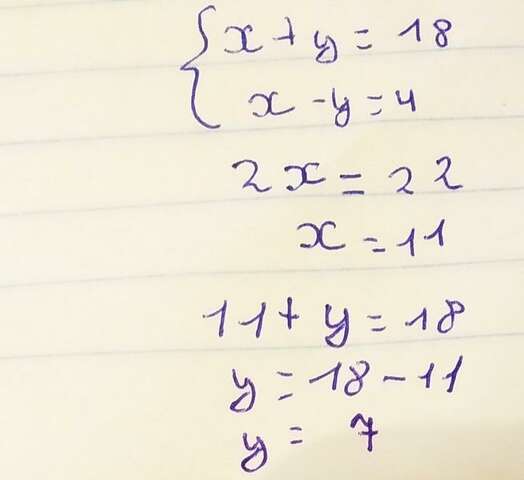 x + y = 18
x - y = 4
2x = 22
x = 11
11 + y = 18
y = 18 - 11
y = 7